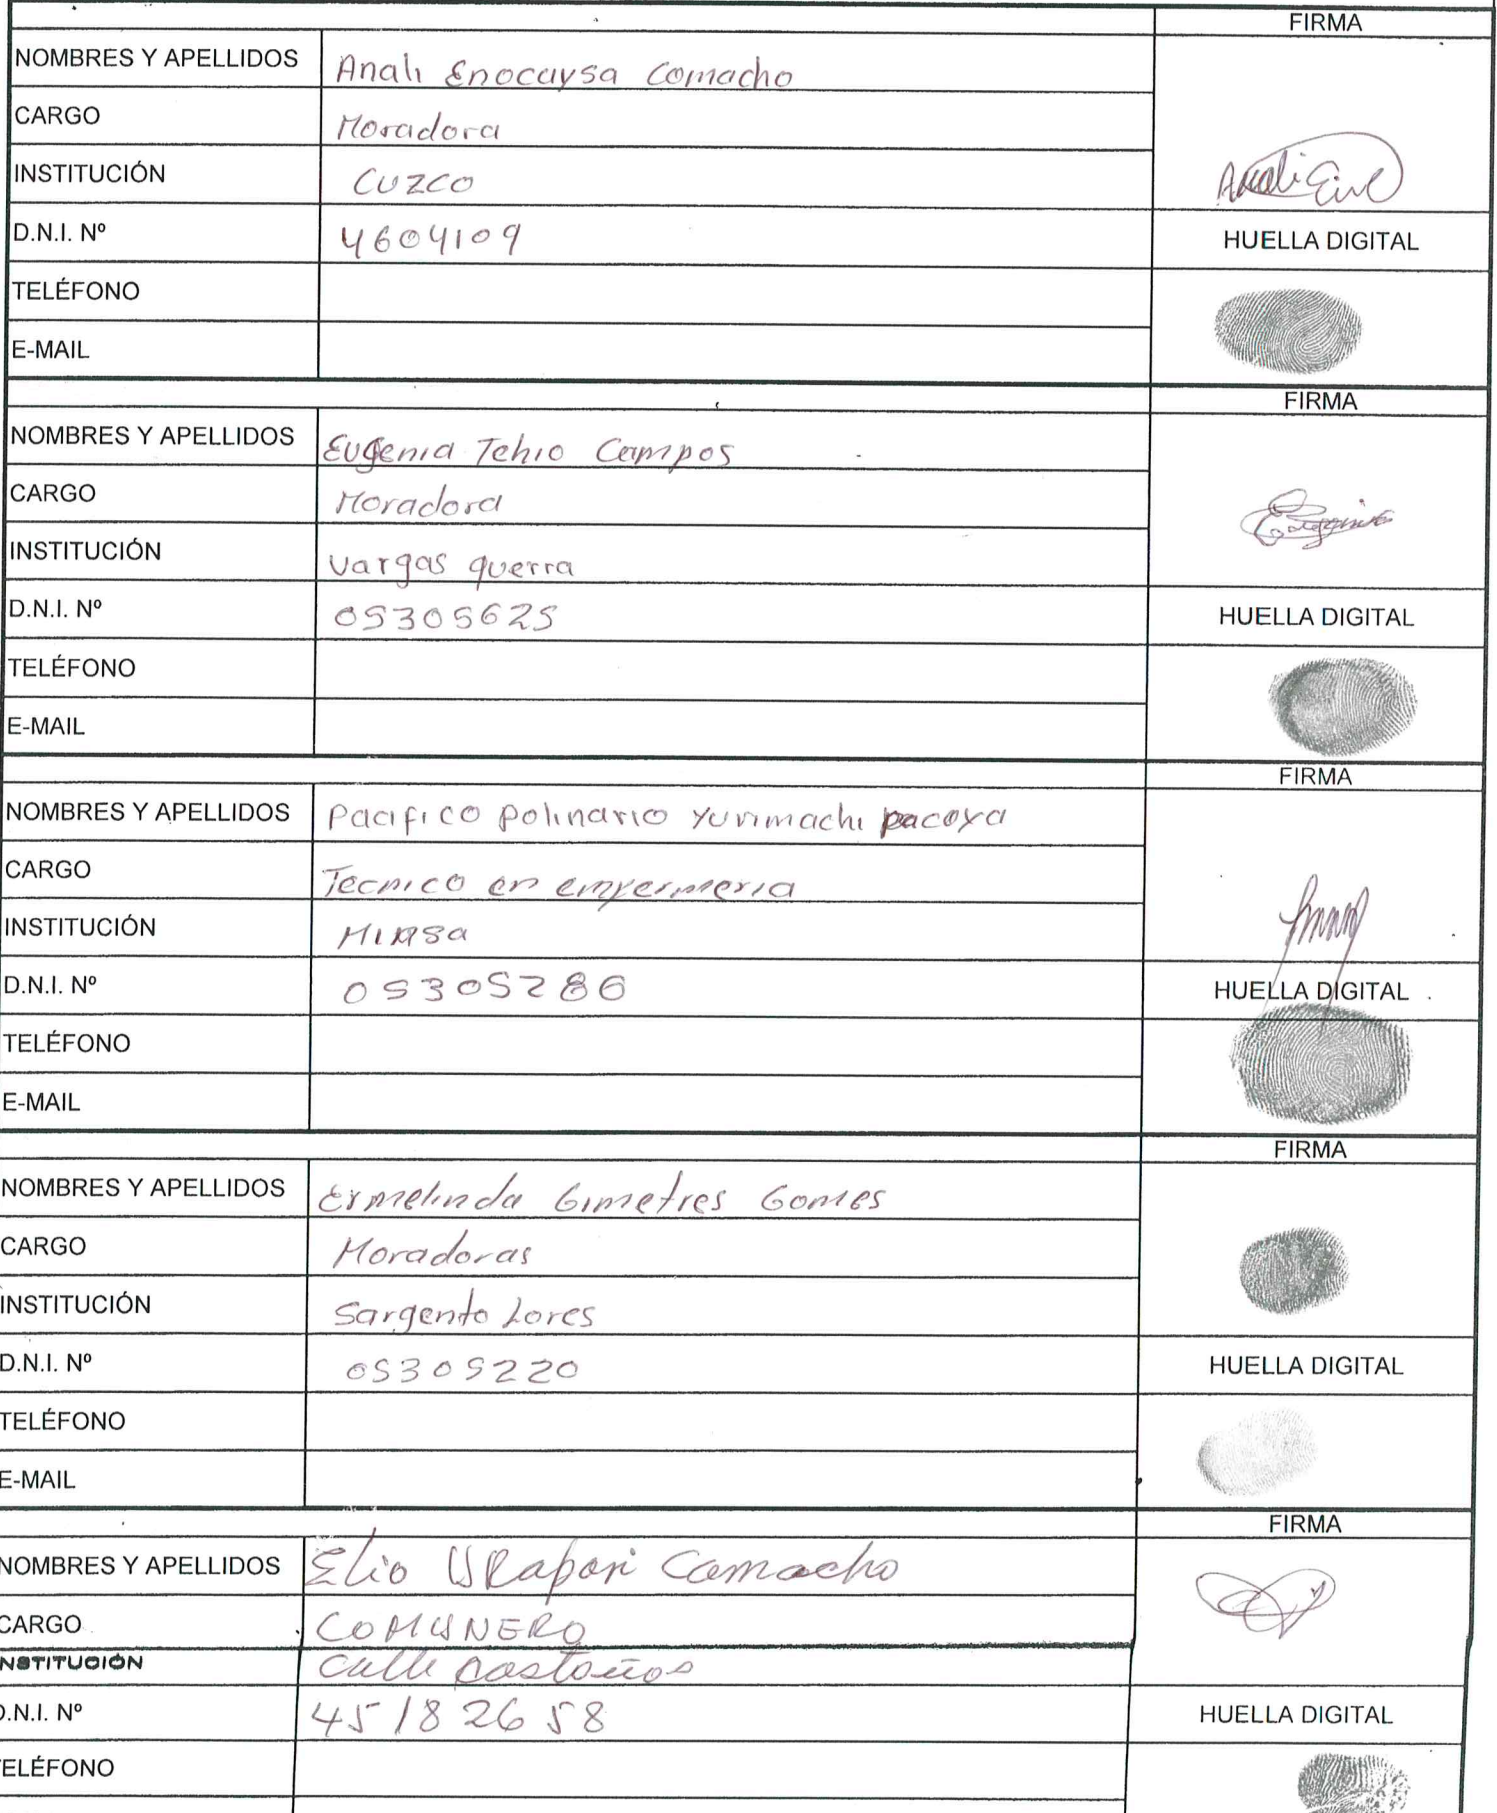 FIRMA
NOMBRES Y APELLIDOS Anali Enocaysa Comacho
CARGO Moradora
INSTITUCIÓN CUZCO
D.N.I. Nº 4604109
HUELLA DIGITAL
TELÉFONO
E-MAIL
FIRMA
NOMBRES Y APELLIDOS Eugenia Tehio Campos
CARGO Moradora
INSTITUCIÓN Vargas guerra
D.N.I. Nº 05305625
HUELLA DIGITAL
TELÉFONO
E-MAIL
FIRMA
NOMBRES Y APELLIDOS Pacifico Polinario Yurimachi pacoya
CARGO Tecnico en enfermeria
INSTITUCIÓN Minsa
D.N.I. Nº 05305286
HUELLA DIGITAL
TELÉFONO
E-MAIL
FIRMA
NOMBRES Y APELLIDOS Ermelinda Gimetres Gomes
CARGO Moradoras
INSTITUCIÓN Sargento Lores
D.N.I. Nº 05305220
HUELLA DIGITAL
TELÉFONO
E-MAIL
FIRMA
NOMBRES Y APELLIDOS Elio URapari Camacho
CARGO COMUNERO
NSTITUCIÓN Calle Castaños
D.N.I. Nº 45182658
HUELLA DIGITAL
TELÉFONO